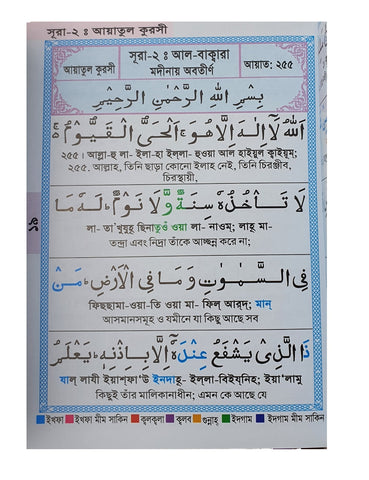 সূরা-২ ঃ আয়াতুল কুরসী
আয়াতুল কুরসী
সূরা-২ ঃ আল-বাক্বারা
মদীনায় অবতীর্ণ
আয়াত: ২৫৫
بِسْمِ اللّٰهِ الرَّحْمٰنِ الرَّحِيْمِ
اَللّٰهُ لَاۤ اِلٰهَ اِلَّا هُوَۚ اَلْحَىُّ الْقَيُّوْمُ ۚ
২৫৫। আল্লা-হু লা- ইলা-হা ইল্লা- হুওয়া আল হাইয়ুল ক্বাইয়ূম;
২৫৫. আল্লাহ, তিনি ছাড়া কোনো ইলাহ নেই, তিনি চিরঞ্জীব,
চিরস্থায়ী,
لَا تَاْخُذُهٗ سِنَةٌ وَّ لَا نَوْمٌؕ لَهٗ مَا
লা- তা'খুযুহূ ছিনাতুওঁ ওয়ালা- নাওম; লাহূ মা-
তন্দ্রা এবং নিদ্রা তাঁকে আচ্ছন্ন করে না;
فِى السَّمٰوٰتِ وَ مَا فِى الْاَرْضِؕ مَنْ
ফিছছামা-ওয়া-তি ওয়া মা- ফিল্ আর্‌দ্ব; মান্
আসমানসমূহ ও যমীনে যা কিছু আছে সব
ذَا الَّذِىْ يَشْفَعُ عِنْدَهٗۤ اِلَّا بِاِذْنِهٖؕ يَعْلَمُ
যাল্ লাযী ইয়াশ্‌ফা'উ ইন্দাহূ- ইল্লা-বিইয্‌নিহ; ইয়া'লামু
কিছুই তাঁর মালিকানাধীন; এমন কে আছে যে
ইখফা ইখফা মীম সাকিন কুলকুলা কুলব গুন্নাহ্ ইদগাম ইদগাম মীম সাকিন